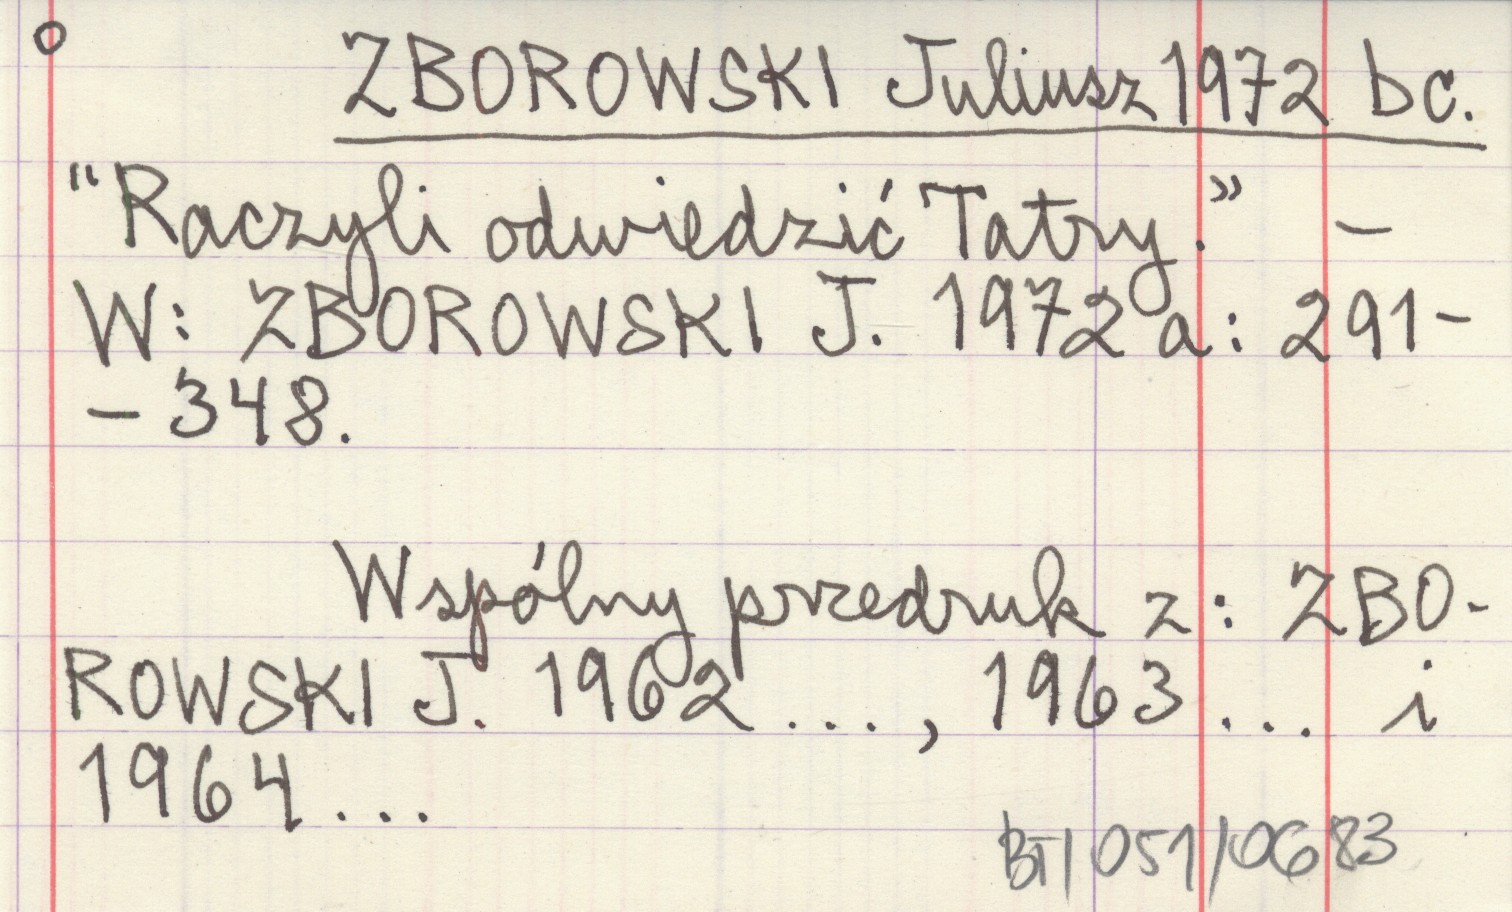 ZBOROWSKI Juliusz 1972 bc.
"Raczyli odwiedzić Tatry." –
W: ZBOROWSKI J. 1972 a: 291-
– 348.
Wspólny przedruk z: ZBO-
ROWSKI J. 1962 ...., 1963 ... i
1964 ...
BT/051/0683